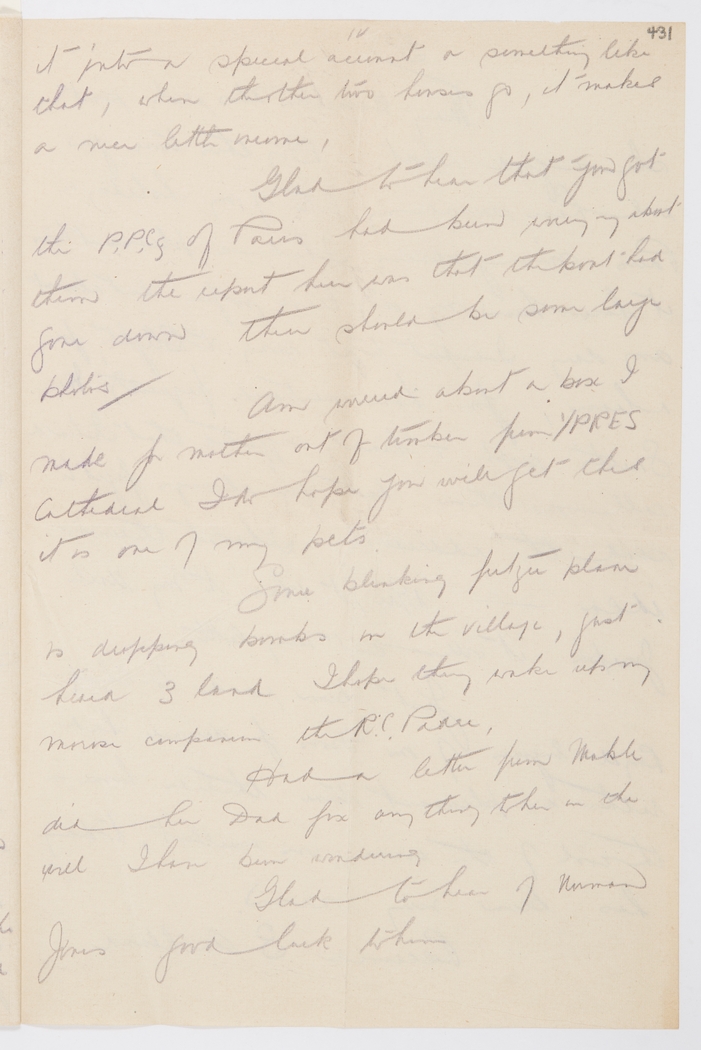 431
it into a special account or something like
that, when the other two houses go, it makes
a nice little income,
Glad to hear that you got
the P.P.Cs of Paris had been worrying about
them the report here was that the boat had
gone down there should be some large
photos/
Am worried about a box I
made for mother out of timber from YPRES
Cathedral I do hope you will get this
it is one of my pets.
Some blinking fritzie plane
is dropping bombs on the village, just
heard 3 land I hope they wake up my
morose companion the R.C. Padre,
Had a letter from Mable
did her Dad fix anything to her in the
will I have been wondering
Glad to hear of Norman
Jones good luck to him